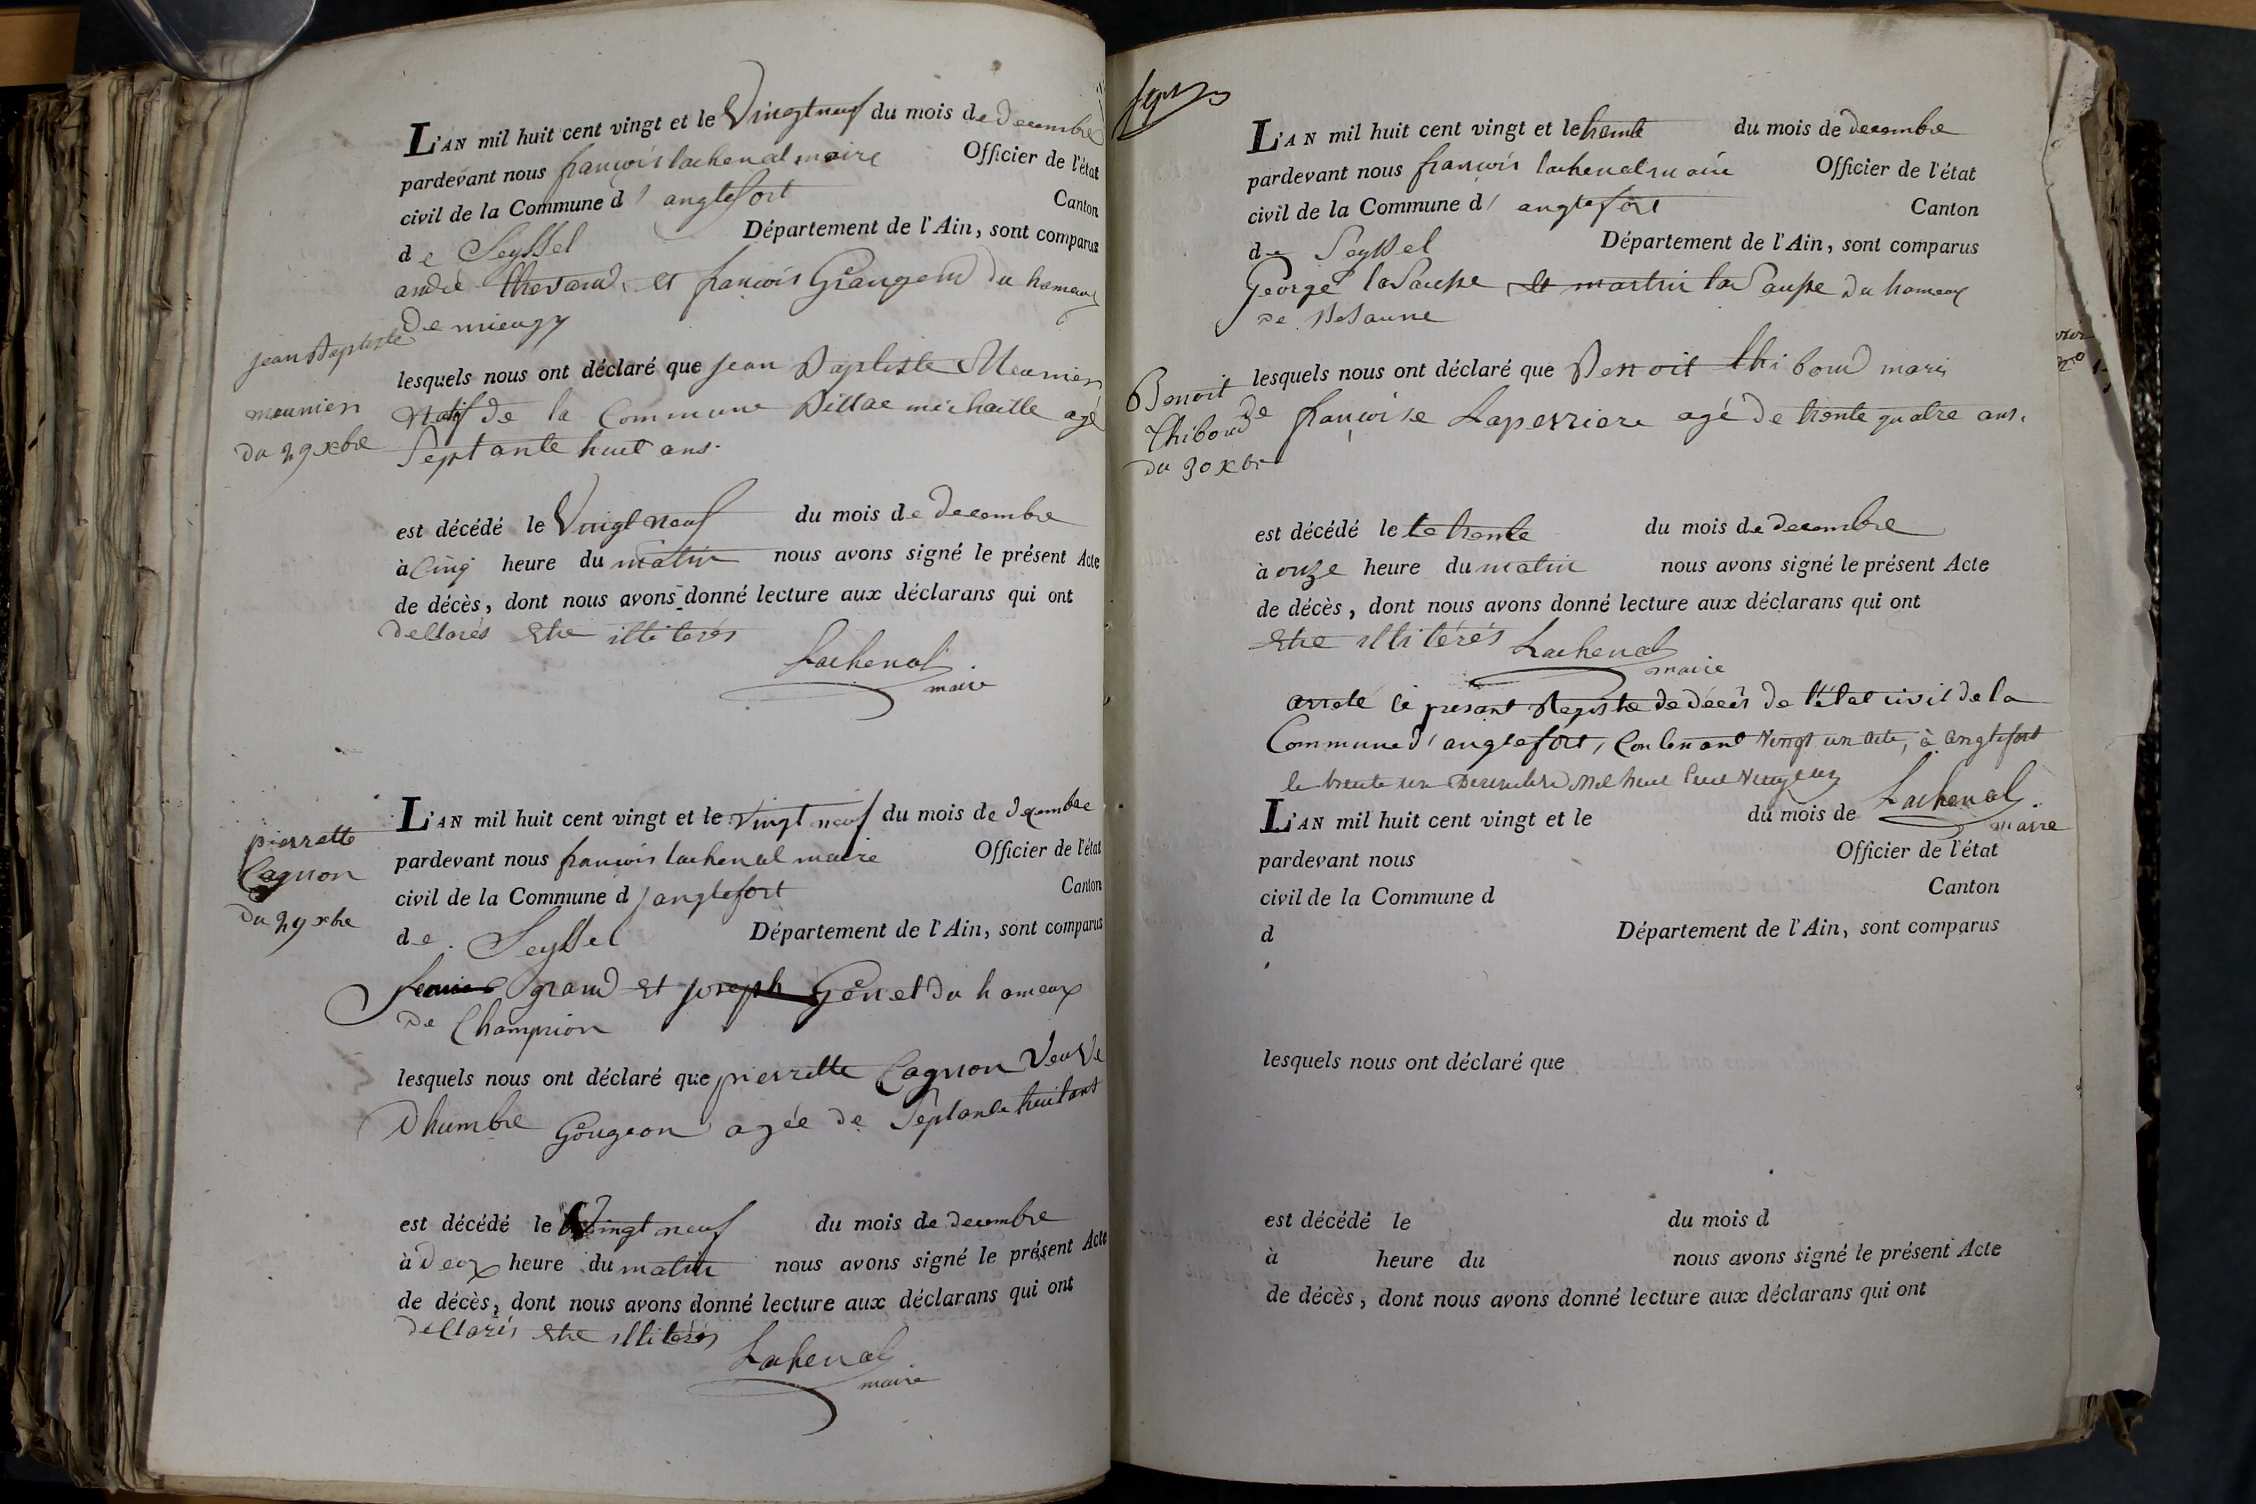 L'AN mil huit cent vingt et le Vingt neuf du mois de decembre
pardevant nous françois lachenal maire Officier de l'état
civil de la Commune d'anglefort Canton
de Seyssel Département de l'Ain, sont comparus
andré thevand et françois Grangeau du hameaux
de mieugy
Jean Baptiste
meunier
du 29 xbre
lesquels nous ont déclaré que jean Baptiste Meunier
Natif de la Commune Billae michaille agé
Septante huit ans.
est décédé le Vingt neuf du mois de decembre
à Cinq heure du matin nous avons signé le présent Acte
de décès, dont nous avons donné lecture aux déclarans qui ont
declarés Etre illiterés
Lachenal
maire
pierrette
Cagnon
du 29 xbre
L'AN mil huit cent vingt et le Vingt neuf du mois de decembre
pardevant nous françois lachenal maire Officier de l'état
civil de la Commune d'anglefort Canton
de Seyssel Département de l'Ain, sont comparus
grand et joseph Genet du hameaux
de Champrion
lesquels nous ont déclaré que pierrette Cagnon Veuve
Dhumbre Gougeon agée de Septante huit ans
est décédé le Vingt neuf du mois de decembre
à deux heure du matin nous avons signé le présent Acte
de décès, dont nous avons donné lecture aux déclarans qui ont
declarés Etre illiterés
Lachenal
maire
sept
L'AN mil huit cent vingt et le trente du mois de decembre
pardevant nous françois lachenal maire Officier de l'état
civil de la Commune d'anglefort Canton
de Seyssel Département de l'Ain, sont comparus
George laSausse et martin la Sausse du hameaux
de
Benoit
Thiboud
du 30 xbre
lesquels nous ont déclaré que Benoit thiboud mari
de françoise Laperriere agé de trente quatre ans.
est décédé le le trente du mois de decembre
à onze heure du matin nous avons signé le présent Acte
de décès, dont nous avons donné lecture aux déclarans qui ont
Etre illitérés Lachenal
maire
arreté le presant Registre de décès de l'état civil de la
Commune d'anglefort, Contenant Vingt un acte, à anglefort
le trente un Decembre mil huit Cent Vingt
Lachenal
maire
L'AN mil huit cent vingt et le du mois de
pardevant nous Officier de l'état
civil de la Commune d Canton
d Département de l'Ain, sont comparus
lesquels nous ont déclaré que
est décédé le du mois d
à heure du nous avons signé le présent Acte
de décès, dont nous avons donné lecture aux déclarans qui ont